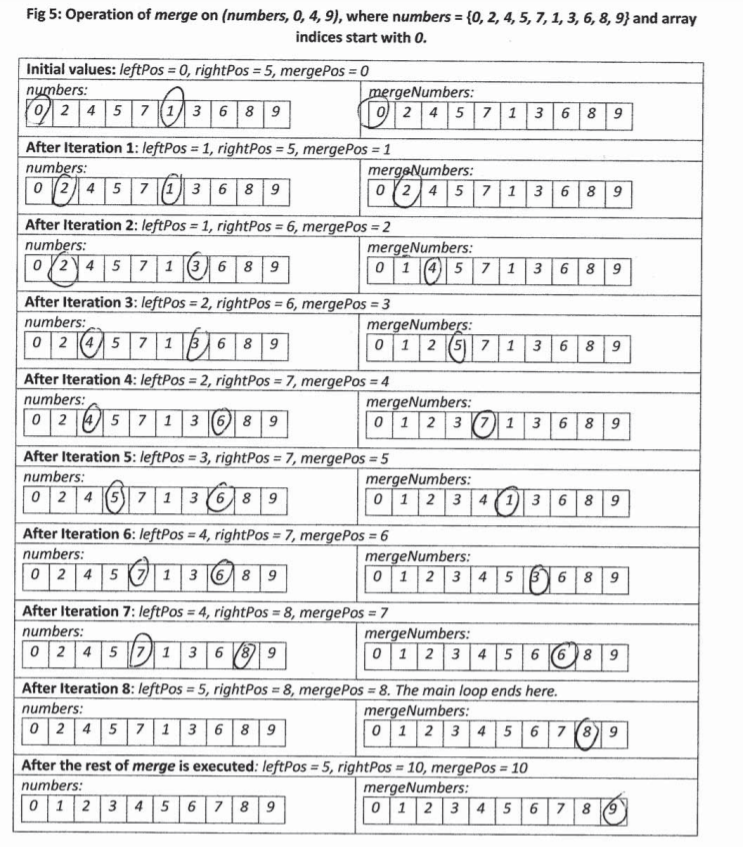 Fig 5: Operation of merge on (numbers, 0, 4, 9), where numbers = {0, 2, 4, 5, 7, 1, 3, 6, 8, 9} and array
indices start with 0.
Initial values: leftPos = 0, rightPos = 5, mergePos = 0
numbers: mergeNumbers:
0 2 4 5 7 1 3 6 8 9 0 2 4 5 7 1 3 6 8 9
After Iteration 1: leftPos = 1, rightPos = 5, mergePos = 1
numbers: mergeNumbers:
0 2 4 5 7 1 3 6 8 9 0 2 4 5 7 1 3 6 8 9
After Iteration 2: leftPos = 1, rightPos = 6, mergePos = 2
numbers: mergeNumbers:
0 2 4 5 7 1 3 6 8 9 0 1 4 5 7 1 3 6 8 9
After Iteration 3: leftPos = 2, rightPos = 6, mergePos = 3
numbers: mergeNumbers:
0 2 4 5 7 1 3 6 8 9 0 1 2 5 7 1 3 6 8 9
After Iteration 4: leftPos = 2, rightPos = 7, mergePos = 4
numbers: mergeNumbers:
0 2 4 5 7 1 3 6 8 9 0 1 2 3 7 1 3 6 8 9
After Iteration 5: leftPos = 3, rightPos = 7, mergePos = 5
numbers: mergeNumbers:
0 2 4 5 7 1 3 6 8 9 0 1 2 3 4 1 3 6 8 9
After Iteration 6: leftPos = 4, rightPos = 7, mergePos = 6
numbers: mergeNumbers:
0 2 4 5 7 1 3 6 8 9 0 1 2 3 4 5 3 6 8 9
After Iteration 7: leftPos = 4, rightPos = 8, mergePos = 7
numbers: mergeNumbers:
0 2 4 5 7 1 3 6 8 9 0 1 2 3 4 5 6 6 8 9
After Iteration 8: leftPos = 5, rightPos = 8, mergePos = 8. The main loop ends here.
numbers: mergeNumbers:
0 2 4 5 7 1 3 6 8 9 0 1 2 3 4 5 6 7 8 9
After the rest of merge is executed: leftPos = 5, rightPos = 10, mergePos = 10
numbers: mergeNumbers:
0 1 2 3 4 5 6 7 8 9 0 1 2 3 4 5 6 7 8 9